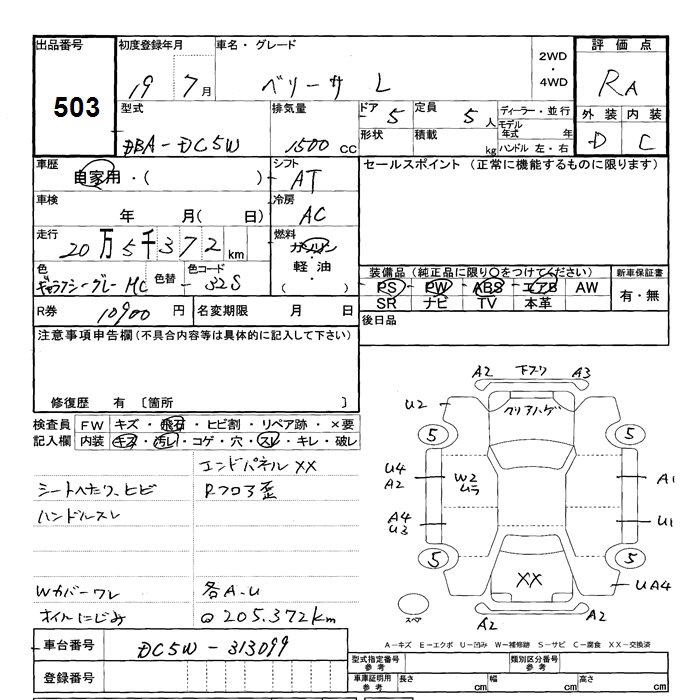 出品番号 503
初度登録年月 19 7月
車名・グレード ベリーサ L
2WD・4WD
評価点 RA
型式 DBA-DC5W
排気量 1500cc
ドア 5
定員 5人
ディーラー・並行
形状
積載 kg
モデル年式 年
ハンドル 左・右
外装 D
内装 C
車歴 自家用・( )
シフト AT
セールスポイント (正常に機能するものに限ります)
車検 年 月( 日)
冷房 AC
走行 20万5千372km
燃料 ガソリン・軽油・( )
色 ギャラクシーグレーMC
色替 -
色コード 32S
装備品(純正品に限り○をつけてください)
PS PW ABS エアB AW
SR ナビ TV 本革
新車保証書 有・無
R券 10900円
名変期限 月 日
後日品
注意事項申告欄(不具合内容等は具体的に記入して下さい)
修復歴 有 〔箇所 〕
検査員記入欄
FW キズ・飛石・ヒビ割・リペア跡・×要
内装 キズ・汚レ・コゲ・穴・スレ・キレ・破レ
エンドパネルXX
シートへたり、ヒビ
Rフロア歪
ハンドルスレ
Wカバーワレ
各A.U
オイルにじみ
◎205.372km
A2 下スリ A3
U2
クリアハゲ
5 5
U4 A2
W2 ムラ
A1
A4 U3
U1
5 5
XX
UA4
スペア
A2 A2
A-キズ E-エクボ U-凹み W-補修跡 S-サビ C-腐食 XX-交換済
車台番号 DC5W-313099
登録番号
型式指定番号参考
類別区分番号参考
車庫証明用参考
長さ cm
幅 cm
高さ cm